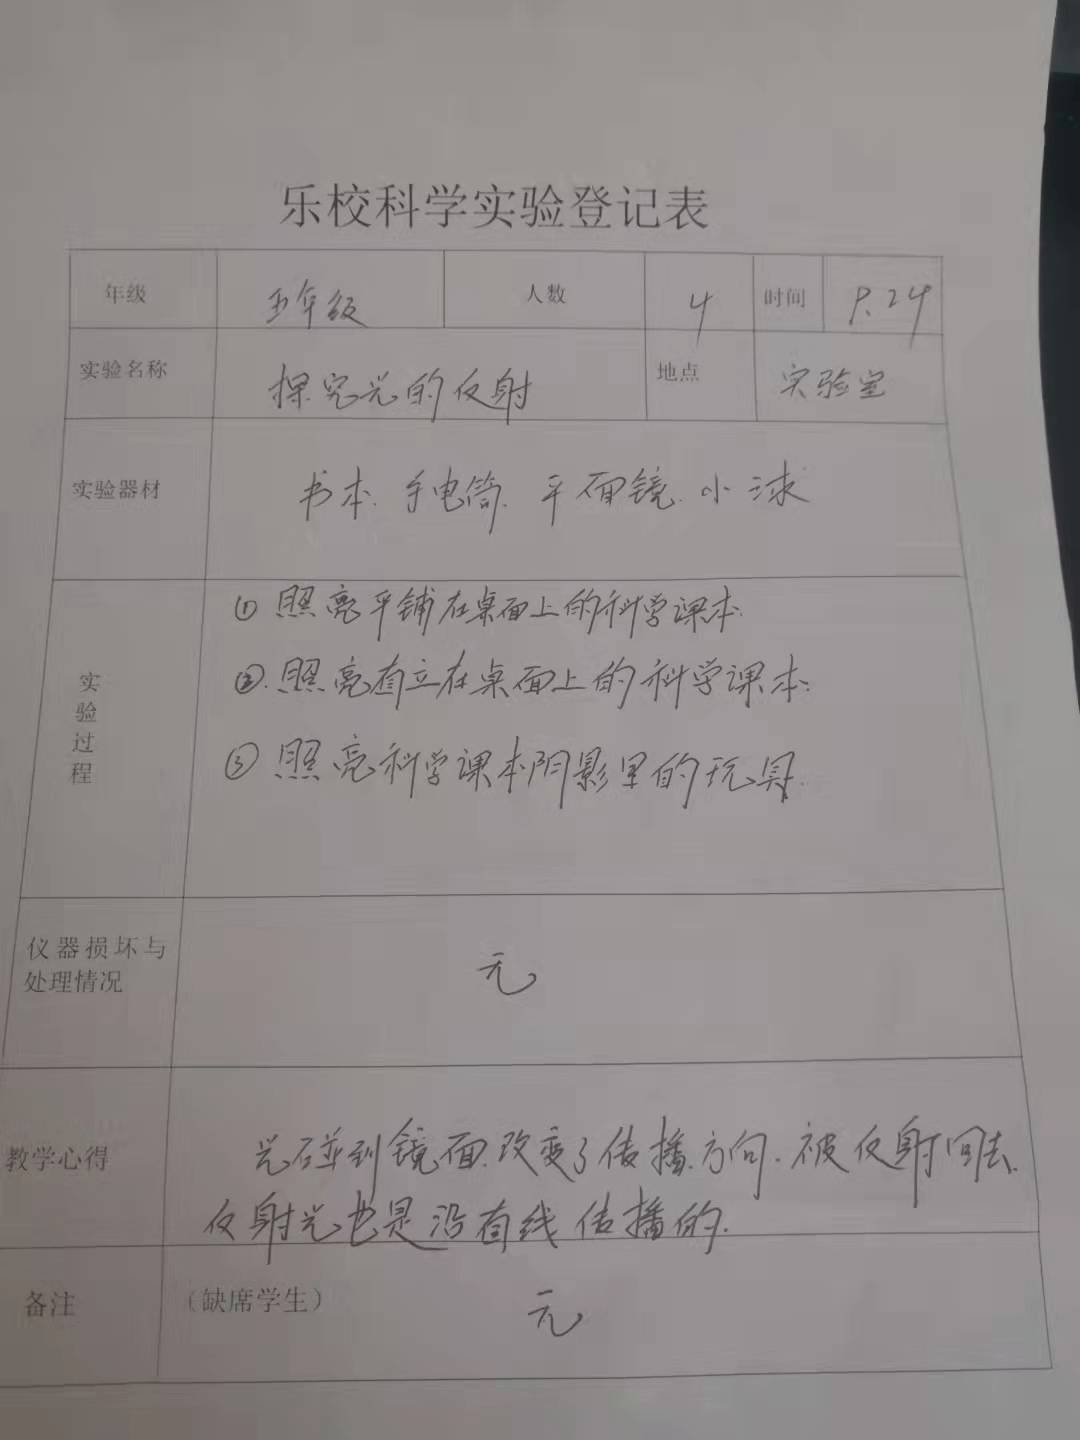 乐校科学实验登记表
年级 五年级 人数 4 时间 9.24
实验名称 探究光的反射 地点 实验室
实验器材 书本、手电筒、平面镜、小球
实验过程
① 照亮平铺在桌面上的科学课本.
②.照亮直立在桌面上的科学课本.
③ 照亮科学课本阴影里的玩具.
仪器损坏与
处理情况
无
教学心得
光碰到镜面.改变了传播方向.被反射回去.
反射光也是沿直线传播的.
备注 （缺席学生） 无